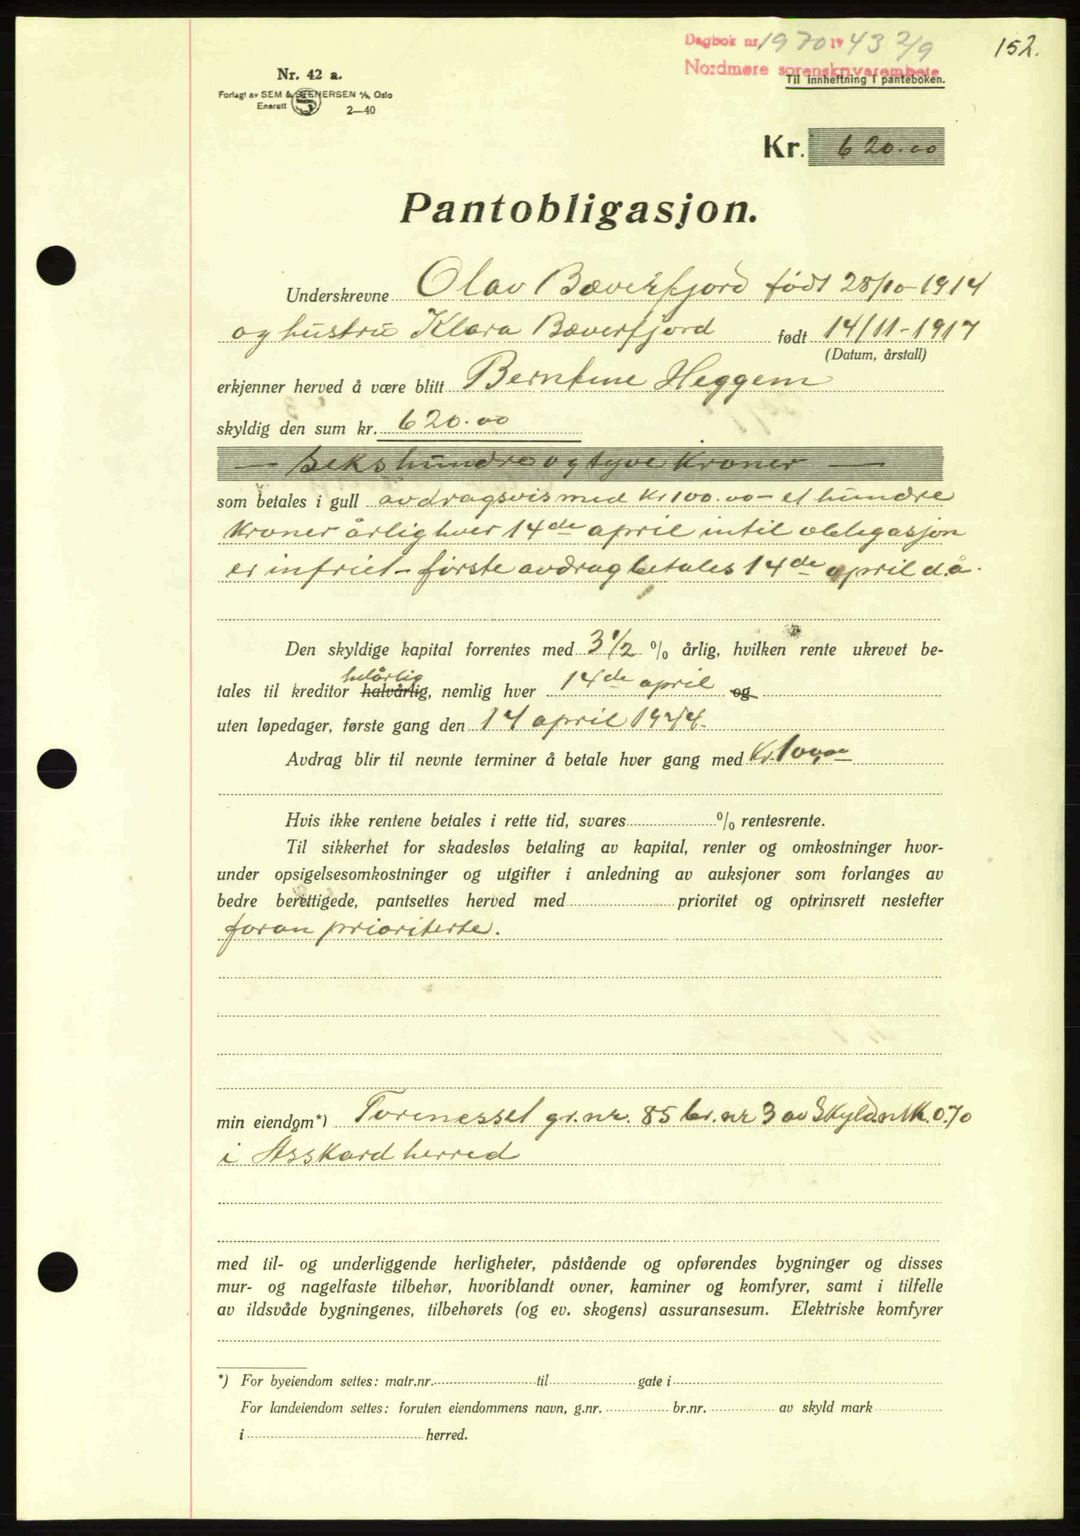 Dagbok nr. 1970 19 43 2/9
152.
Nordmøre sorenskriverembete
Til innheftning i panteboken.
Nr. 42 a.
Forlagt av SEM & STENERSEN A/S, Oslo
Enerett
2—40
Kr. 620.00
Pantobligasjon.
Underskrevne Olav Bæverfjord født 28/10-1914
og hustru Klara Bæverfjord født 14/11-1917
(Datum, årstall)
erkjenner herved å være blitt Berntine Heggem
skyldig den sum kr. 620.00
— sekshundre og tyve kroner —
som betales i gull avdragsvis med kr 100.00 - et hundre
kroner årlig hver 14de april intil obligasjon
er infriet - første avdrag betales 14de april d.å.
Den skyldige kapital forrentes med 3 1/2 % årlig, hvilken rente ukrevet be-
helårlig
tales til kreditor halvårlig, nemlig hver 14de april og
uten løpedager, første gang den 14 april 1944.
Avdrag blir til nevnte terminer å betale hver gang med Kr. 100.00
Hvis ikke rentene betales i rette tid, svares % rentesrente.
Til sikkerhet for skadesløs betaling av kapital, renter og omkostninger hvor-
under opsigelsesomkostninger og utgifter i anledning av auksjoner som forlanges av
bedre berettigede, pantsettes herved med prioritet og optrinsrett nestefter
foran prioriterte.
min eiendom*) Torenesset gr.nr. 85 br.nr 3 av Skyld mk. 0.70
i Åsskard herred
med til- og underliggende herligheter, påstående og opførendes bygninger og disses
mur- og nagelfaste tilbehør, hvoriblandt ovner, kaminer og komfyrer, samt i tilfelle
av ildsvåde bygningenes, tilbehørets (og ev. skogens) assuransesum. Elektriske komfyrer
*) For byeiendom settes: matr.nr. til gate i
For landeiendom settes: foruten eiendommens navn, g.nr. br.nr. av skyld mark
i herred.